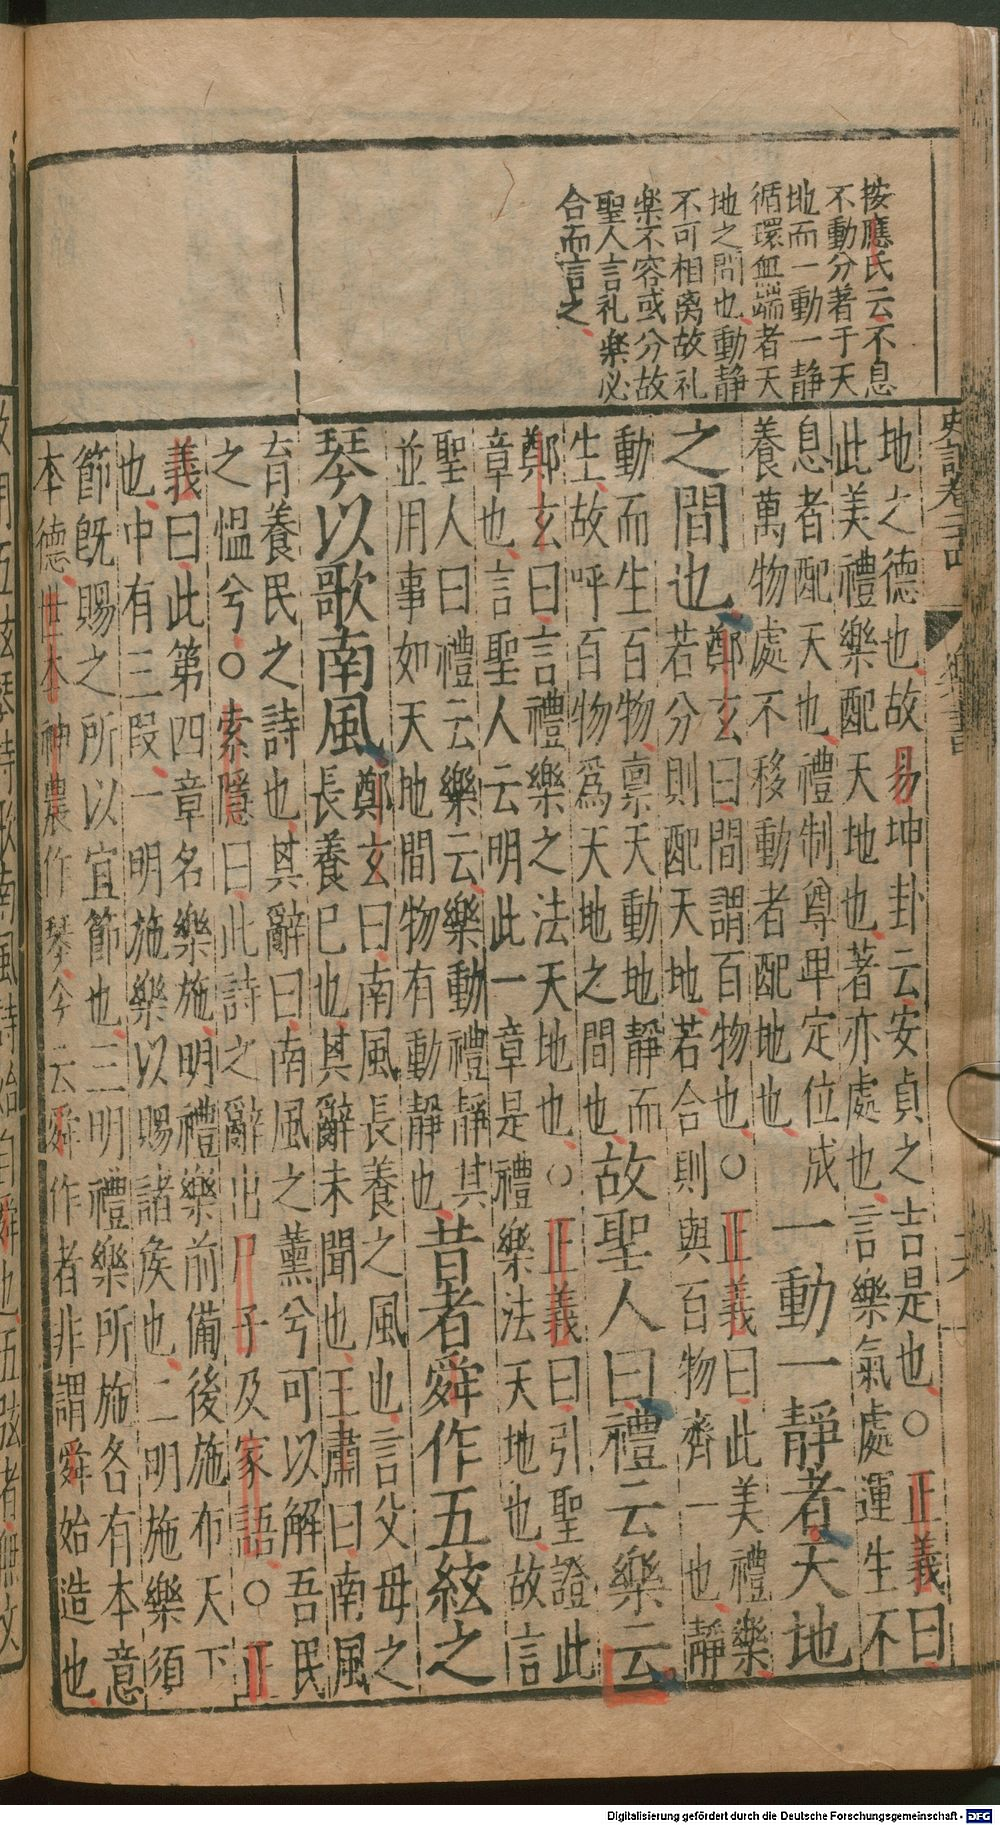 按應氏云不息
不動分著于天
地而一動一靜
循環無端者天
地之間也動靜
不可相离故礼
樂不容或分故
聖人言礼樂必
合而言之
史記卷二十四
樂書
地之德也故易坤卦云安貞之吉是也○正義曰
此美禮樂配天地也著亦處也言樂氣處運生不
息者配天也禮制尊卑定位成
養萬物處不移動者配地也
一動一靜者天地
之間也
鄭玄曰間謂百物也○正義曰此美禮樂
若分則配天地若合則與百物齊一也靜
動而生百物稟天動地靜而
生故呼百物爲天地之間也
故聖人曰禮云樂云
鄭玄曰言禮樂之法天地也○正義曰引聖證此
章也言聖人云明此一章是禮樂法天地也故言
聖人曰禮云樂云樂動禮靜其
並用事如天地間物有動靜也
昔者舜作五絃之
琴以歌南風
鄭玄曰南風長養之風也言父母之
長養已也其辭未聞也王肅曰南風
育養民之詩也其辭曰南風之薰兮可以解吾民
之慍兮○索隱曰此詩之辭出尸子及家語○正
義曰此第四章名樂施明禮樂前備後施布天下
也中有三段一明施樂以賜諸侯也二明施樂須
節旣賜之所以宜節也三明禮樂所施各有本意
本德世本神農作琴今云舜作者非謂舜始造也
Digitalisierung gefördert durch die Deutsche Forschungsgemeinschaft - DFG